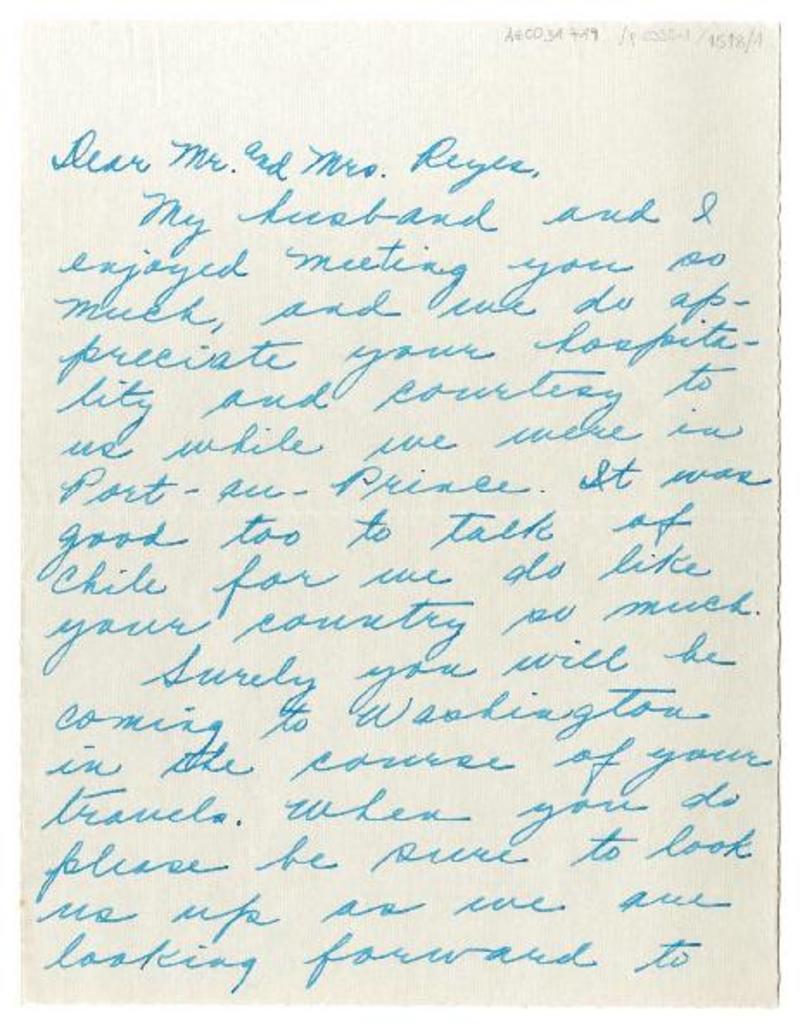 Dear Mr. and Mrs. Reyes,
My husband and I
enjoyed meeting you so
much, and we do ap-
preciate your hospita-
lity and courtesy to
us while we were in
Port-au-Prince. It was
good too to talk of
Chile for we do like
your country so much.
Surely you will be
coming to Washington
in the course of your
travels. When you do
please be sure to look
us up as we are
looking forward to